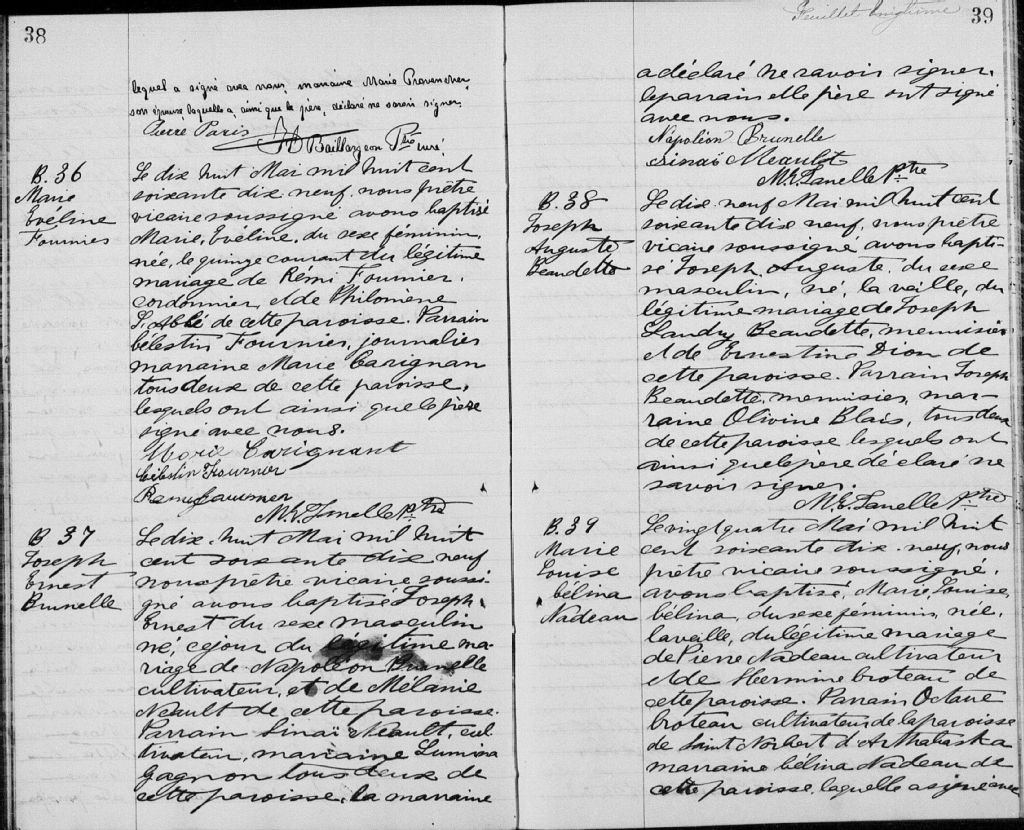 38
lequel a signé avec nous, marraine Marie Provencher,
son épouse laquelle a, ainsi que le père, déclaré ne savoir signer.
Pierre Paris
Baillargeon Ptre curé
B. 36
Marie
Eveline
Fournier
Le dix huit Mai mil huit cent
soixante dix neuf, nous prêtre
vicaire soussigné avons baptisé
Marie, Evéline, du sexe féminin,
née, le quinze courant du légitime
mariage de Rémi Fournier,
cordonnier et de Philomène
L'Abbé de cette paroisse. Parrain
Célestin Fournier, journalier
marraine Marie Carignan
tous deux de cette paroisse,
lesquels ont ainsi que le père
signé avec nous.
Marie Carignant
Célestin Fournier
Remi Fournier
Ptre
B. 37
Joseph
Ernest
Brunelle
Le dix huit Mai mil huit
cent soixante dix neuf
nous prêtre vicaire soussi
gné avons baptisé Joseph
Ernest du sexe masculin
né, ce jour du légitime ma-
riage de Napoléon Brunelle
cultivateur, et de Mélanie
Néault de cette paroisse.
Parrain Sinaï Néault, cul
tivateur, marraine Lumina
Gagnon tous deux de
cette paroisse, la marraine
Feuillet vingtième
39
a déclaré ne savoir signer,
le parrain et le père ont signé
avec nous.
Napoléon Brunelle
Sinaï Néault
Ptre
B. 38
Joseph
Auguste
Beaudette
Le dix neuf Mai mil huit cent
soixante dix neuf, nous prêtre
vicaire soussigné avons bapti-
sé Joseph, Auguste, du sexe
masculin, né, la veille, du
légitime mariage de Joseph
Landry Beaudette, menuisier
et de Ernestine Dion de
cette paroisse. Parrain Joseph
Beaudette, menuisier, mar-
raine Olivine Blais, tous deux
de cette paroisse lesquels ont
ainsi que le père déclaré ne
savoir signer.
Ptre
B. 39
Marie
Louise
Célina
Nadeau
Le vingt quatre Mai mil huit
cent soixante dix neuf, nous
prêtre vicaire soussigné,
avons baptisé, Marie, Louise,
Célina, du sexe féminin, née,
la veille, du légitime mariage
de Pierre Nadeau cultivateur
et de Hermine Croteau de
cette paroisse. Parrain Octave
Croteau cultivateur de la paroisse
de Saint Norbert d'Arthabaska
marraine Célina Nadeau de
cette paroisse, laquelle a signé avec